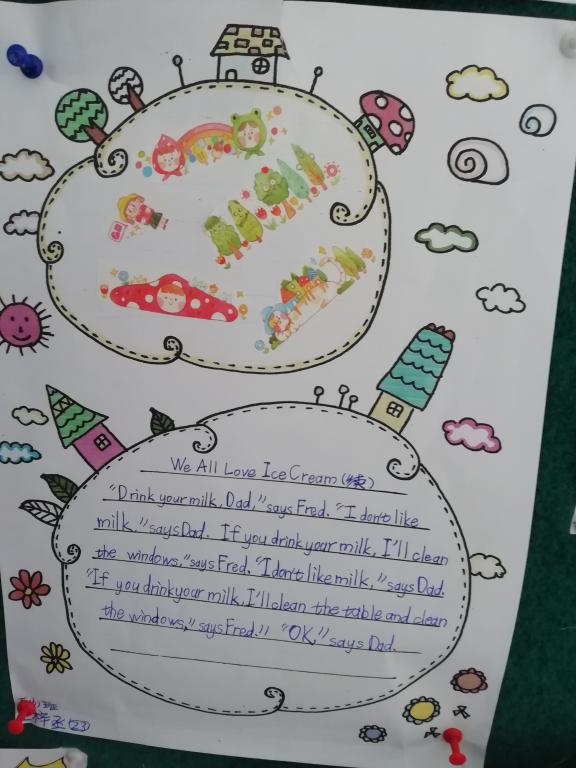 GO!
We All Love Ice Cream (续)
"Drink your milk, Dad," says Fred. "I don't like
milk." says Dad. If you drink your milk, I'll clean
the windows," says Fred. "I don't like milk," says Dad.
"If you drink your milk, I'll clean the table and clean
the windows," says Fred." "OK," says Dad.
班
梓丞(23)